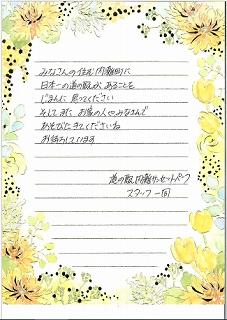 みなさんの住む内灘町に
日本一の道の駅が、あることを
じまんに思ってください
そしてまた お家の人やみなさんで
あそびにきてくださいね
お待ちしています
道の駅 内灘サンセットパーク
スタッフ一同